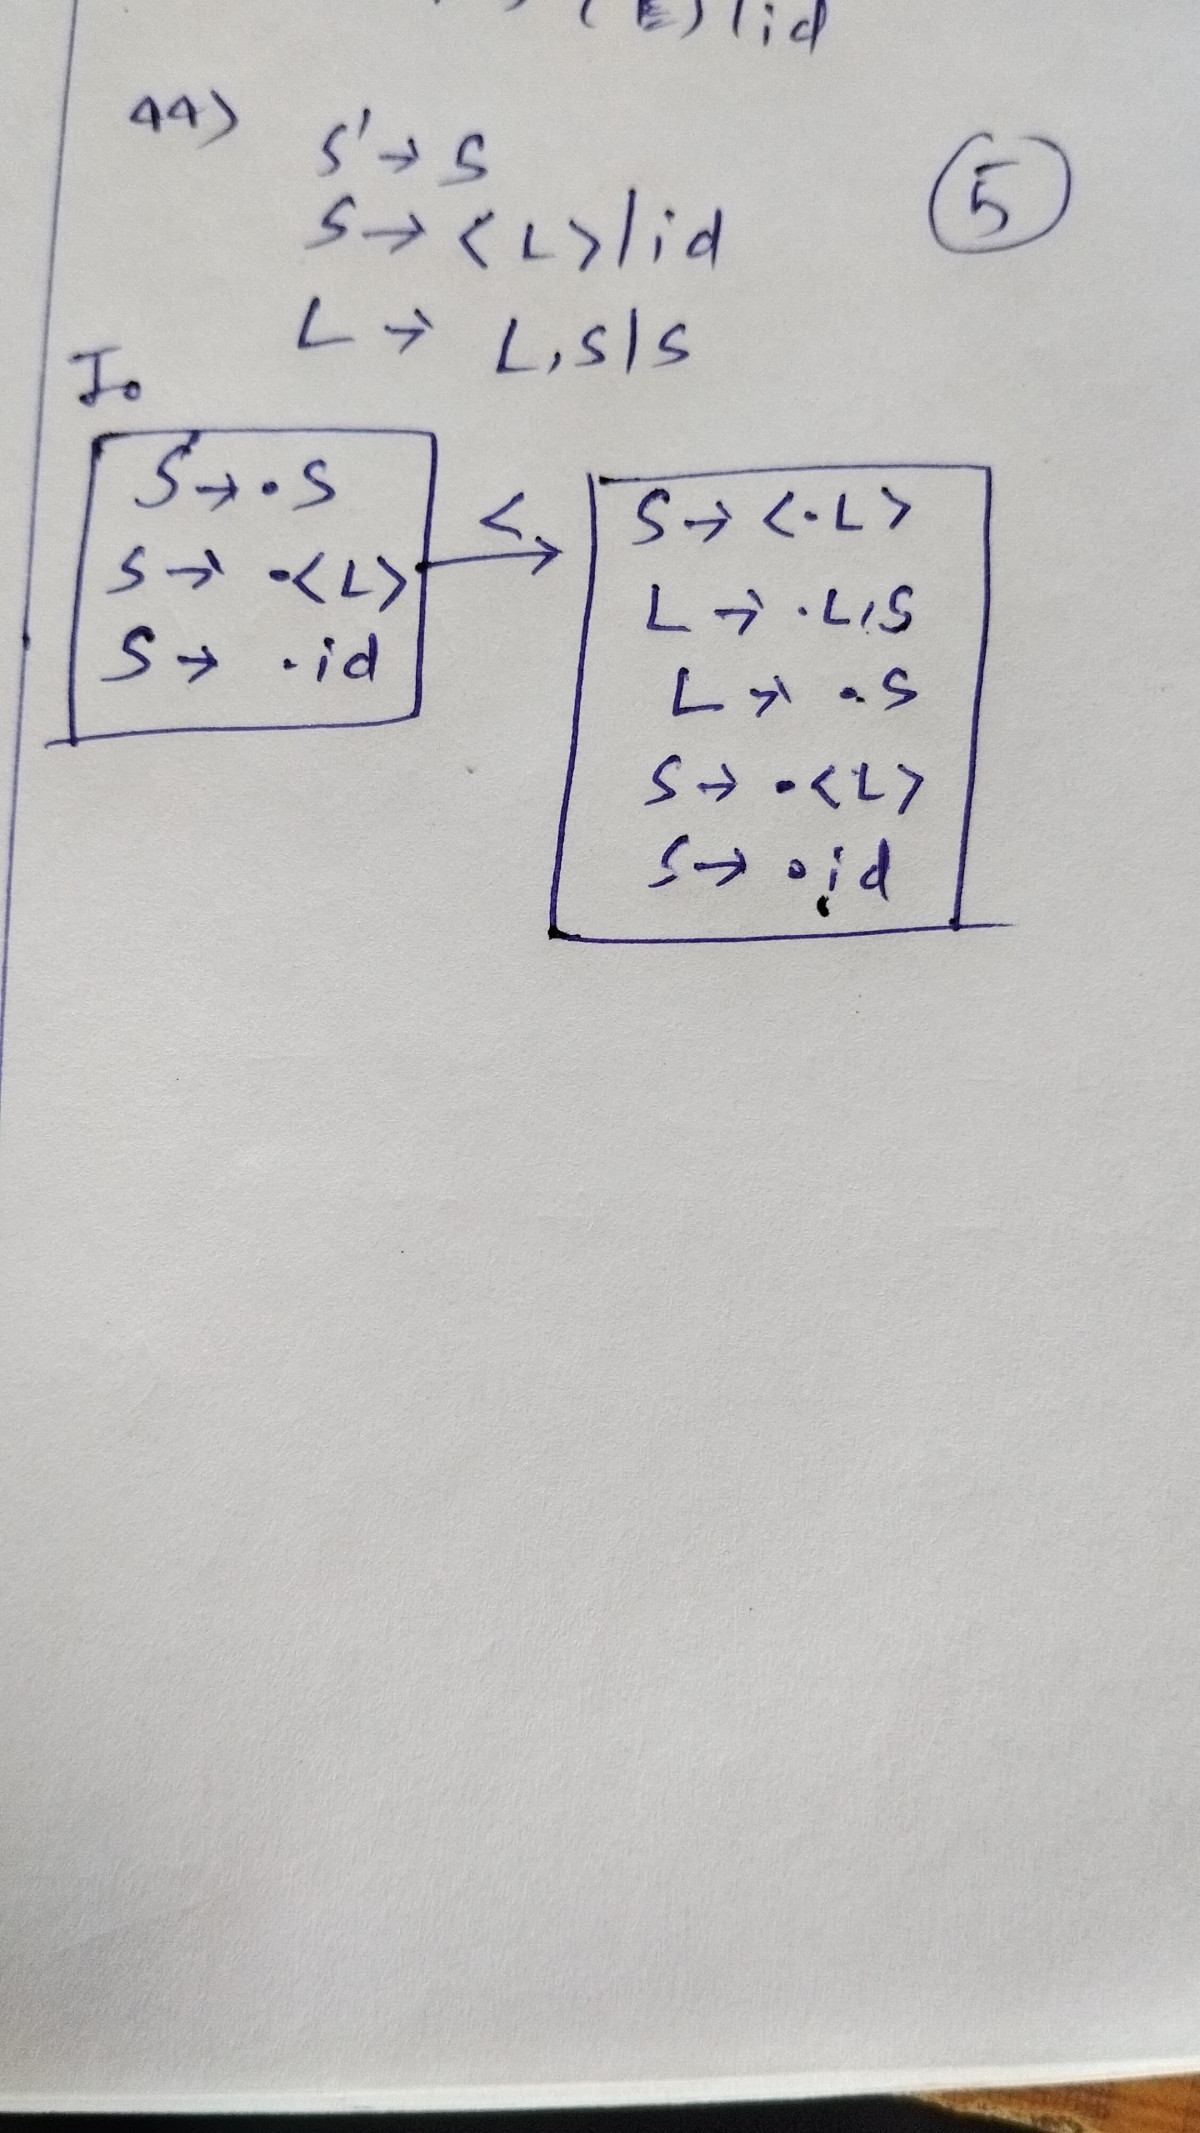 (E) | id
44)
S' → S
5
S → < L > | id
L → L, S | S
I₀
S' → .S
S → .<L>
S → .id
<
S → <.L>
L → .L,S
L → .S
S → .<L>
S → .id